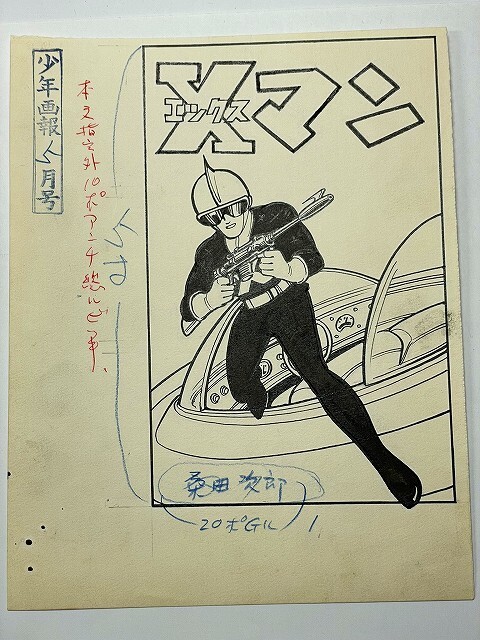 Xマン
エックス
少年画報 5月号
本文指定外10ポアンチ総ルビ付
5寸
桑田次郎
20ポGル
1.